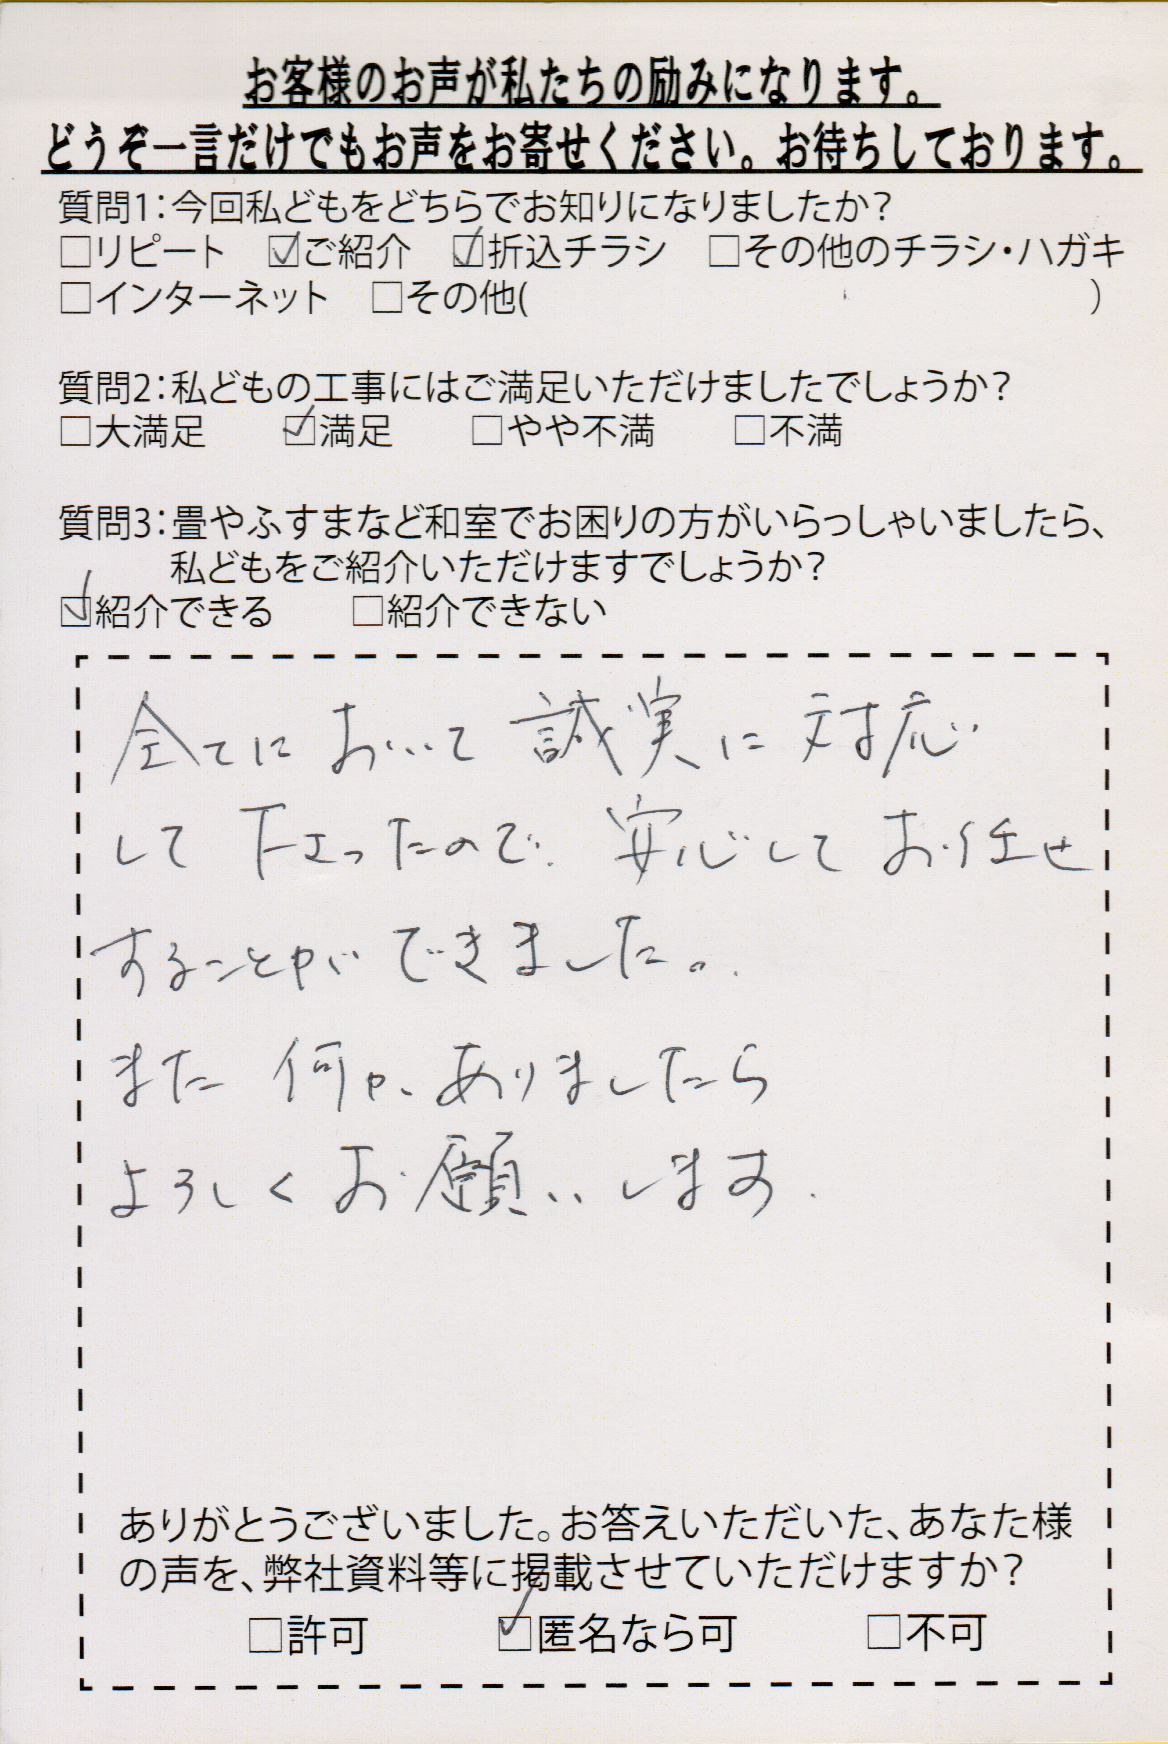 お客様のお声が私たちの励みになります。
どうぞ一言だけでもお声をお寄せください。お待ちしております。
質問1：今回私どもをどちらでお知りになりましたか？
□リピート ☑ご紹介 ☑折込チラシ □その他のチラシ・ハガキ
□インターネット □その他( )
質問2：私どもの工事にはご満足いただけましたでしょうか？
□大満足 ☑満足 □やや不満 □不満
質問3：畳やふすまなど和室でお困りの方がいらっしゃいましたら、
私どもをご紹介いただけますでしょうか？
☑紹介できる □紹介できない
全てにおいて誠実に対応
して下さったので、安心してお任せ
することができました。
また何かありましたら
よろしくお願いします.
ありがとうございました。お答えいただいた、あなた様
の声を、弊社資料等に掲載させていただけますか？
□許可 ☑匿名なら可 □不可